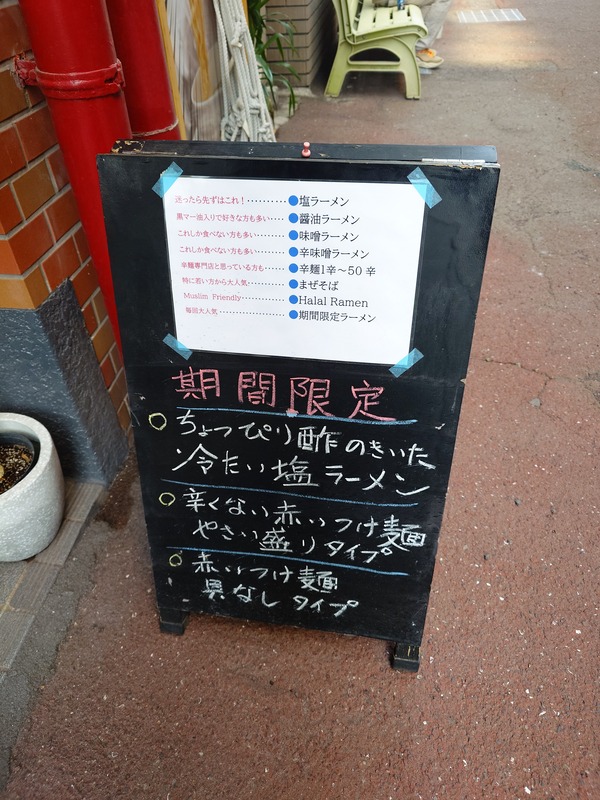 迷ったら先ずはこれ！··········●塩ラーメン
黒マー油入りで好きな方も多い····●醤油ラーメン
これしか食べない方も多い·······●味噌ラーメン
これしか食べない方も多い·······●辛味噌ラーメン
辛麺専門店と思っている方も·····●辛麺1辛～50 辛
特に若い方から大人気·········●まぜそば
Muslim Friendly···········●Halal Ramen
毎回大人気·················●期間限定ラーメン
期間限定
○ちょっぴり酢のきいた
冷たい塩ラーメン
○辛くない赤いつけ麺
やさい盛りタイプ
○赤いつけ麺
具なしタイプ